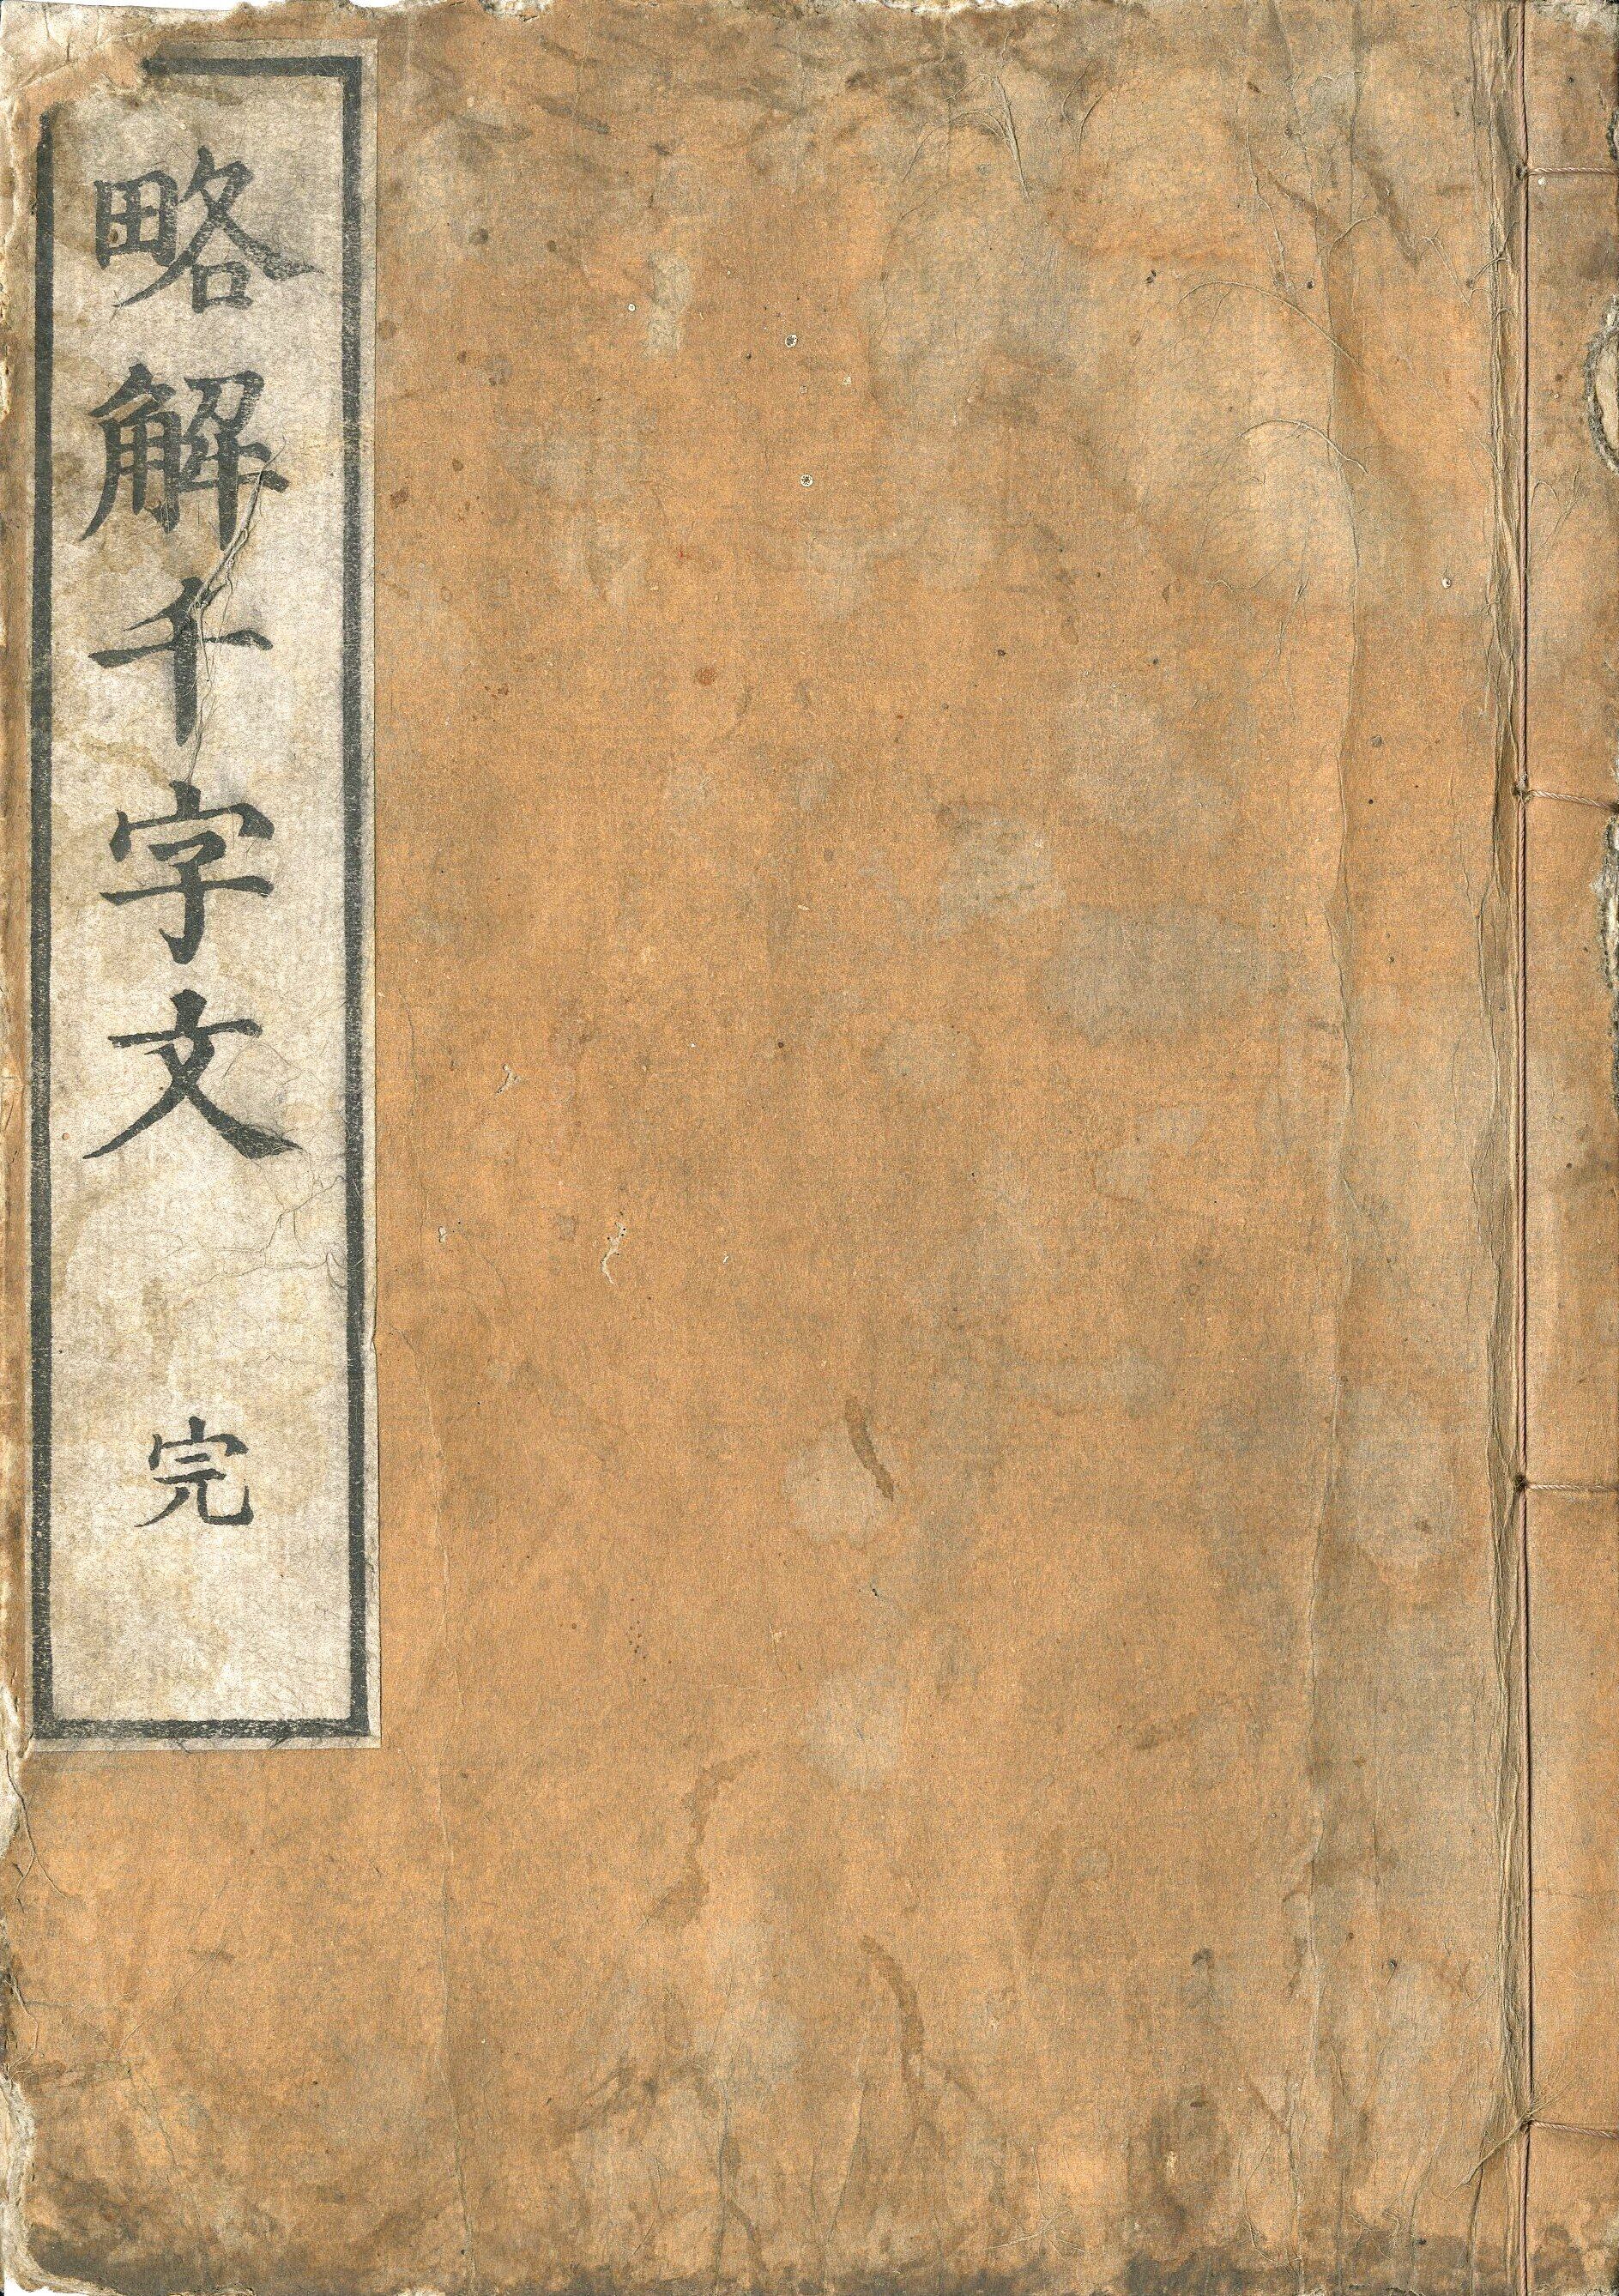 略解千字文
完